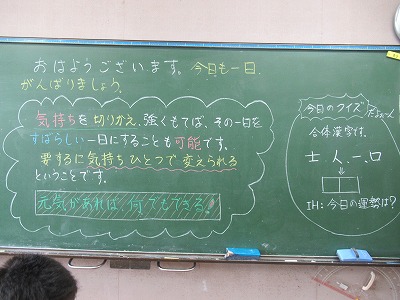 おはようございます。今日も一日、
がんばりましょう。
気持ちを切りかえ、強くもてば、その一日を
すばらしい一日にすることも可能です。
要するに気持ちひとつで変えられる
ということです。
元気があれば何でもできる!
今日のクイズだよ〜ん
合体漢字は。
士 人 一 口
↓
IH:今日の運勢は?